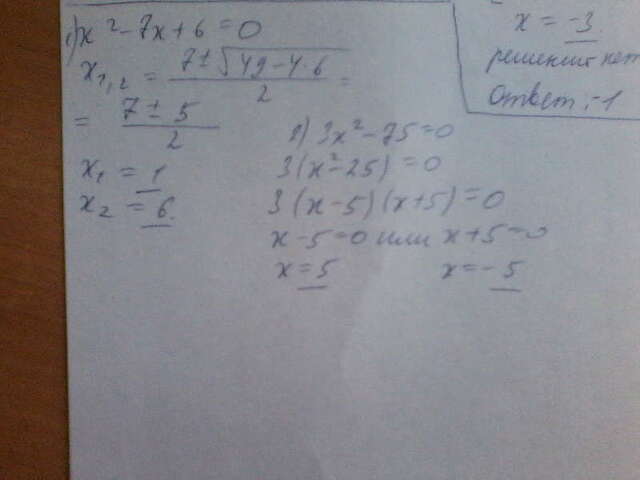 1) x² - 7x + 6 = 0
x₁,₂ = (7 ± √(49 - 4·6)) / 2 =
= (7 ± 5) / 2
x₁ = 1
x₂ = 6.
2) 3x² - 75 = 0
3(x² - 25) = 0
3(x - 5)(x + 5) = 0
x - 5 = 0 или x + 5 = 0
x = 5 x = -5
x = -3
решений нет
Ответ: -1